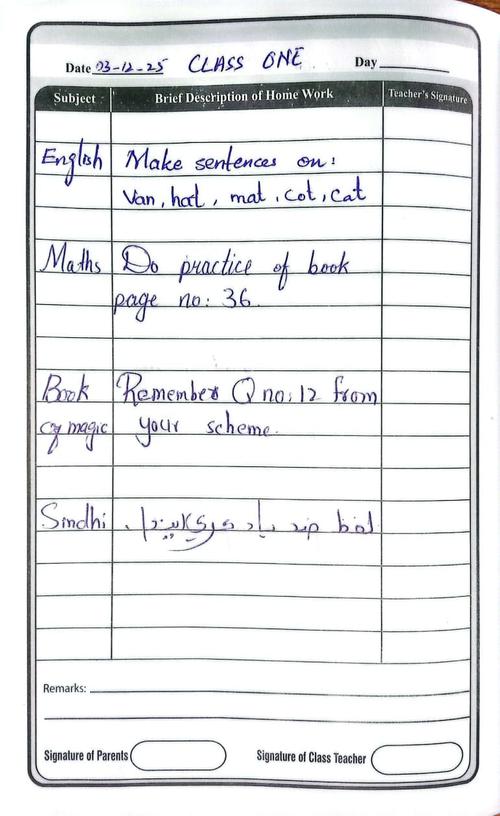 Date 03-12-25 CLASS ONE Day
Subject Brief Description of Home Work Teacher's Signature
English Make sentences on:
Van, hat, mat, cot, cat
Maths Do practice of book
page no: 36.
Book Remember Q no: 12 from
of magic your scheme.
Sindhi لفظ ضد ياد ڪري ايندا.
Remarks:
Signature of Parents Signature of Class Teacher